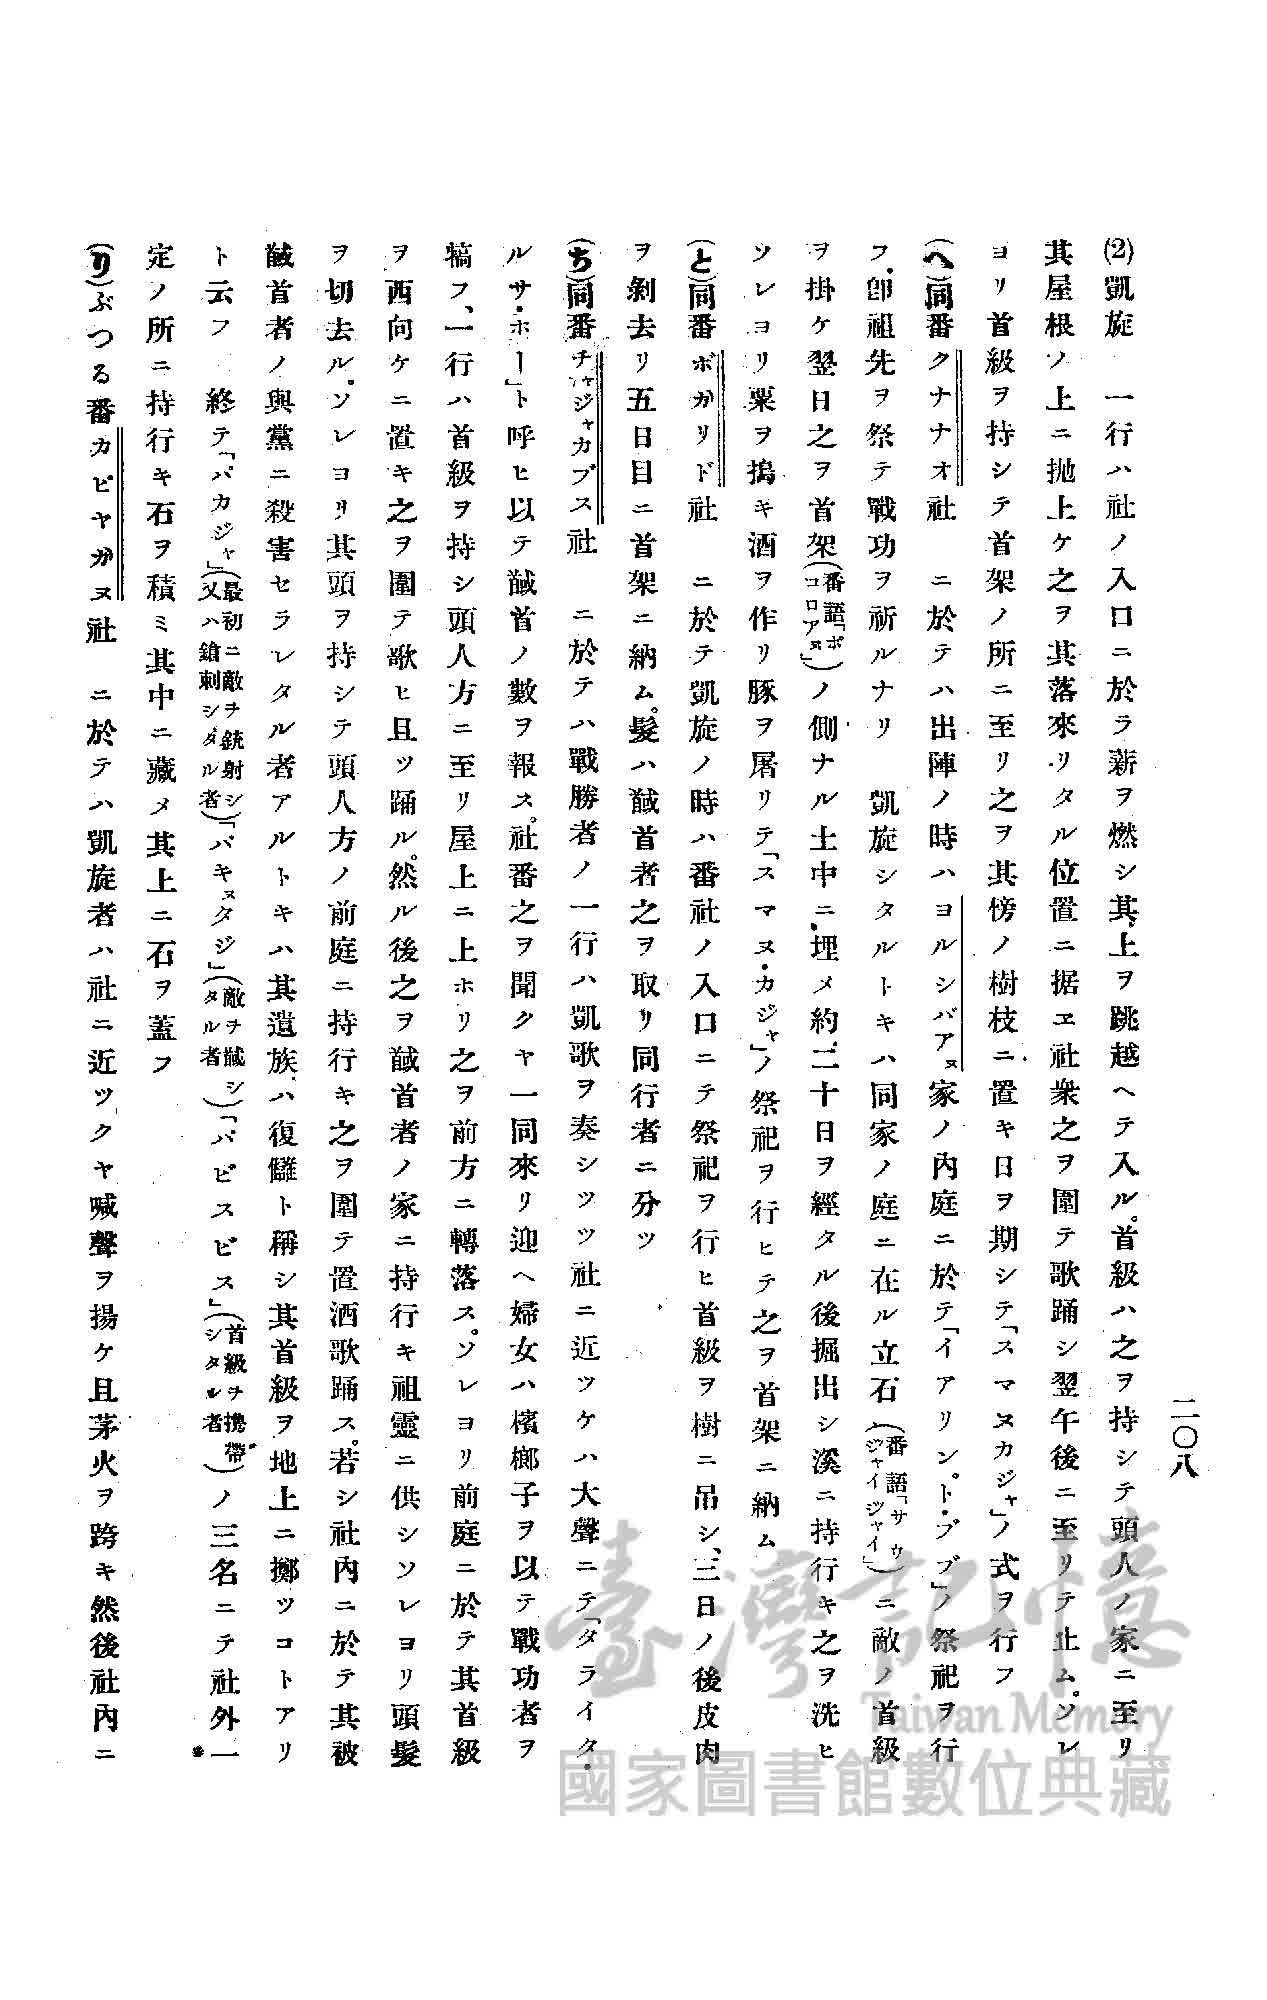 二〇八
(2)凱旋　一行ハ社ノ入口ニ於テ薪ヲ燃シ其上ヲ跳越ヘテ入ル。首級ハ之ヲ持シテ頭人ノ家ニ至リ
其屋根ノ上ニ抛上ケ之ヲ其落來リタル位置ニ据ヱ社衆之ヲ圍テ歌踊シ翌午後ニ至リテ止ム。ソレ
ヨリ首級ヲ持シテ首架ノ所ニ至リ之ヲ其傍ノ樹枝ニ置キ日ヲ期シテ「スマヌカジャ」ノ式ヲ行フ
(へ)同番クナナオ社　ニ於テハ出陣ノ時ハヨルシバアヌ家ノ內庭ニ於テ「イアリン、ト・ブブ」ノ祭祀ヲ行
フ、卽祖先ヲ祭テ戰功ヲ祈ルナリ　凱旋シタルトキハ同家ノ庭ニ在ル立石(番語「サウジャイジャイ」)ニ敵ノ首級
ヲ掛ケ翌日之ヲ首架(番語「ポコロアヌ」)ノ側ナル土中ニ埋メ約二十日ヲ經タル後掘出シ溪ニ持行キ之ヲ洗ヒ
ソレヨリ粟ヲ搗キ酒ヲ作リ豚ヲ屠リテ「スマヌ・カジャ」ノ祭祀ヲ行ヒテ之ヲ首架ニ納ム
(と)同番ボガリド社　ニ於テ凱旋ノ時ハ番社ノ入口ニテ祭祀ヲ行ヒ首級ヲ樹ニ吊シ、三日ノ後皮肉
ヲ剝去リ五日目ニ首架ニ納ム。髮ハ馘首者之ヲ取リ同行者ニ分ツ
(ち)同番チャジャカブス社　ニ於テハ戰勝者ノ一行ハ凱歌ヲ奏シツツ社ニ近ツケハ大聲ニテ「タライタ・
ルサ・ホー」ト呼ヒ以テ馘首ノ數ヲ報ス。社番之ヲ聞クヤ一同來リ迎ヘ婦女ハ檳榔子ヲ以テ戰功者ヲ
犒フ、一行ハ首級ヲ持シ頭人方ニ至リ屋上ニ上ホリ之ヲ前方ニ轉落ス。ソレヨリ前庭ニ於テ其首級
ヲ西向ケニ置キ之ヲ圍テ歌ヒ且ツ踊ル。然ル後之ヲ馘首者ノ家ニ持行キ祖靈ニ供シソレヨリ頭髮
ヲ切去ル。ソレヨリ其頭ヲ持シテ頭人方ノ前庭ニ持行キ之ヲ圍テ置酒歌踊ス。若シ社內ニ於テ其被
馘首者ノ與黨ニ殺害セラレタル者アルトキハ其遺族ハ復讎ト稱シ其首級ヲ地上ニ擲ツコトアリ
ト云フ　終テ「パカジャ」(最初ニ敵ヲ銃射シ又ハ鎗刺シタル者)「バキヌタジ」(敵ヲ馘シタル者)「パビスビス」(首級ヲ携帶シタル者)ノ三名ニテ社外一
定ノ所ニ持行キ石ヲ積ミ其中ニ藏メ其上ニ石ヲ蓋フ
(り)ぶつる番カピヤガヌ社　ニ於テハ凱旋者ハ社ニ近ツクヤ喊聲ヲ揚ケ且茅火ヲ跨キ然後社內ニ
臺灣記憶
Taiwan Memory
國家圖書館數位典藏